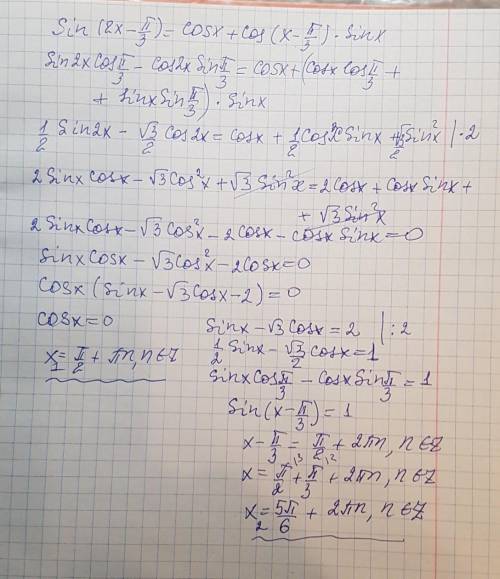 Sin (2x - π/3) = cosx + cos (x - π/3) · Sinx
Sin2x cos π/3 - cos2x Sin π/3 = cosx + (cosx cos π/3 +
+ Sinx Sin π/3) · Sinx
1/2 Sin2x - √3/2 cos2x = cosx + 1/2 cosx Sinx + √3/2 Sin²x | · 2
2Sinx cosx - √3 cos²x + √3 Sin²x = 2cosx + cosx Sinx +
+ √3 Sin²x
2Sinx cosx - √3 cos²x - 2cosx - cosx Sinx = 0
Sinx cosx - √3 cos²x - 2cosx = 0
cosx (Sinx - √3 cosx - 2) = 0
cosx = 0
x₁ = π/2 + πn, n ∈ Z
Sinx - √3 cosx = 2 | : 2
1/2 Sinx - √3/2 cosx = 1
Sinx cos π/3 - cosx Sin π/3 = 1
Sin (x - π/3) = 1
x - π/3 = π/2 + 2πn, n ∈ Z
x = π/2 \3 + π/3 \2 + 2πn, n ∈ Z
x₂ = 5π/6 + 2πn, n ∈ Z